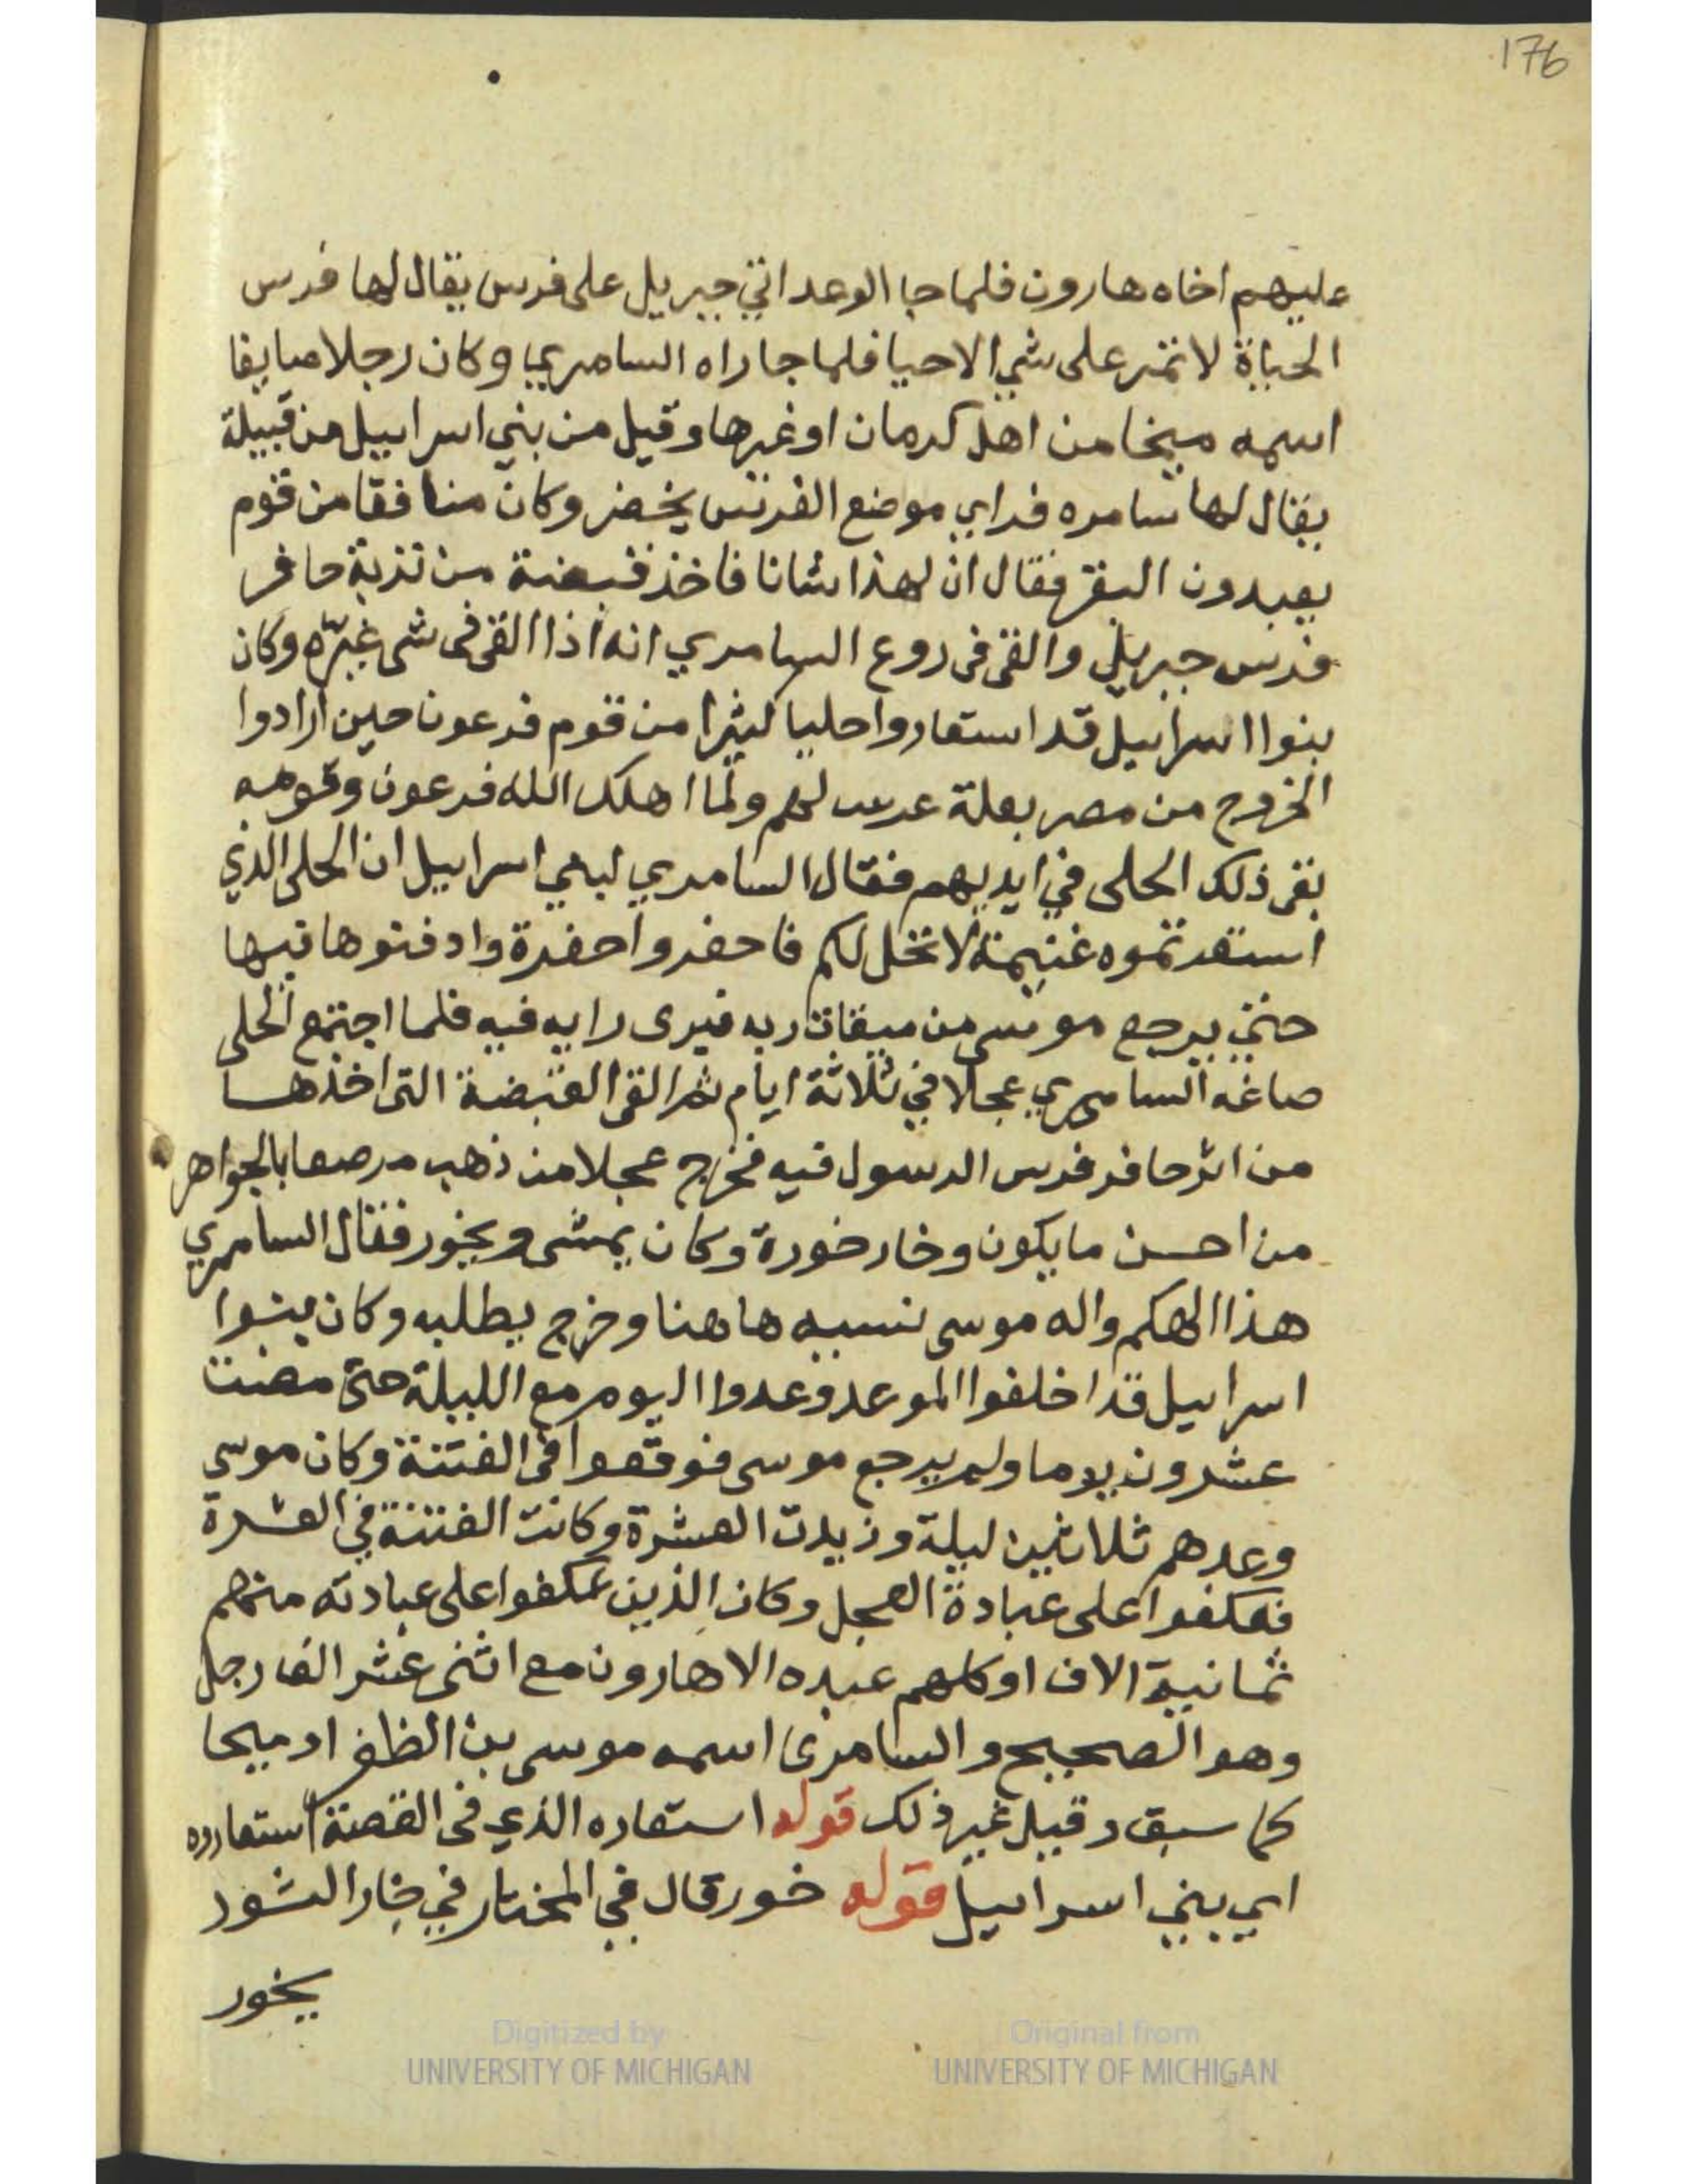 176
عليهم اخاه هارون فلما جا الوعد اتي جبريل على فرس يقال لها فرس
الحياة لا تمر على شي الا حيا فلما جا راه السامري وكان رجلا صايغا
اسمه ميخا من اهل كرمان او غيرها وقيل من بني اسراييل من قبيلة
يقال لها سامره فراي موضع الفرس يخضر وكان منافقا من قوم
يعبدون البقر فقال ان لهذا شانا فاخذ قبضة من تربة حافر
فرس جبريل والقى فى روع السامري انه اذا القى فى شى غيره وكان
بنوا اسراييل قد استعاروا حليا كثيرا من قوم فرعون حين ارادوا
الخروج من مصر بعلة عرس لهم ولما اهلك الله فرعون وقومه
بقى ذلك الحلى في ايديهم فقال السامري لبني اسراييل ان الحلى الذي
استعرتموه غنيمة لا تحل لكم فاحفروا حفرة وادفنوها فيها
حتي يرجع موسى من ميقات ربه فيرى رايه فيه فلما اجتمع الحلى
صاغه السامري عجلا في ثلاثة ايام ثم القى القبضة التى اخذها
من اثر حافر فرس الرسول فيه فخرج عجلا من ذهب مرصعا بالجواهر
من احسن ما يكون وخار خورة وكان يمشى ويخور فقال السامري
هذا الهكم واله موسى نسيه هاهنا وخرج يطلبه وكان بنوا
اسراييل قد اخلفوا الموعد وعدوا اليوم مع الليلة حتى مضت
عشرون يوما ولم يرجع موسى فوقعوا فى الفتنة وكان موسي
وعدهم ثلاثين ليلة وزيدت العشرة وكانت الفتنة في العشرة
فعكفوا على عبادة العجل وكان الذين عكفوا على عبادته منهم
ثمانية الاف او كلهم عبده الا هارون مع اثنى عشر الف رجل
وهو الصحيح والسامرى اسمه موسى بن الظفر او ميحا
كما سبق وقيل غير ذلك قوله استعاره الذي فى القصة استعاروه
اي بني اسراييل قوله خور قال في المختار في خار الثور
يخور
Digitized by
UNIVERSITY OF MICHIGAN
Original from
UNIVERSITY OF MICHIGAN